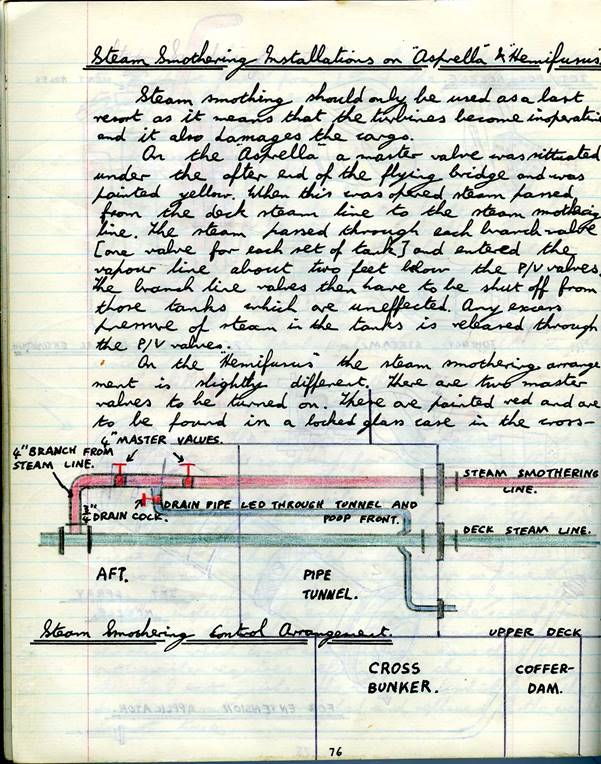 Steam Smothering Installations on "Asprella" & "Hemifusus"
Steam smothing should only be used as a last
resort as it means that the turbines become inoperati
and it also damages the cargo.
On the "Asprella" a master valve was sittuated
under the after end of the flying bridge and was
painted yellow. When this was opened steam passed
from the deck steam line to the steam smothering
line. The steam passed through each branch valve
[one valve for each set of tank] and entered the
vapour line about two feet below the P/V valves.
The branch line valves then have to be shut off from
those tanks which are uneffected. Any excess
pressure of steam in the tanks is released through
the P/V valves.
On the "Hemifusus" the steam smothering arrange
ment is slightly different. There are two master
valves to be turned on. These are painted red and are
to be found in a locked glass case in the cross-
4" MASTER VALVES.
4" BRANCH FROM
STEAM LINE.
STEAM SMOTHERING
LINE.
3/4"
DRAIN COCK.
DRAIN PIPE LED THROUGH TUNNEL AND
POOP FRONT.
DECK STEAM LINE.
AFT.
PIPE
TUNNEL.
Steam Smothering Control Arrangement.
UPPER DECK
CROSS
BUNKER.
COFFER-
DAM.
76